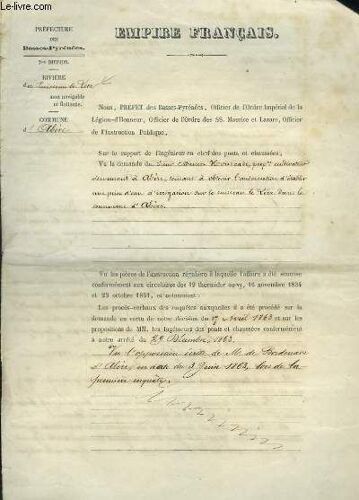 PRÉFECTURE
DES
Basses-Pyrénées.
EMPIRE FRANÇAIS.
DIVISION.
RIVIÈRE
du ruisseau le Léza
non navigable
ni flottable.
COMMUNE
d'Abère
Nous, PRÉFET des Basses-Pyrénées, Officier de l'Ordre Impérial de la
Légion-d'Honneur, Officier de l'Ordre des SS. Maurice et Lazare, Officier
de l'Instruction Publique,
Sur le rapport de l'Ingénieur en chef des ponts et chaussées,
Vu la demande du Sieur cultivateur
demeurant à Abère, tendant à obtenir l'autorisation d'établir
une prise d'eau d'irrigation sur le ruisseau le dans la
commune d'Abère.
Vu les pièces de l'instruction régulière à laquelle l'affaire a été soumise
conformément aux circulaires des 19 thermidor an VI, 16 novembre 1834
et 23 octobre 1851, et notamment:
Les procès-verbaux des enquêtes auxquelles il a été procédé sur la
demande en vertu de notre décision du Avril 1863 et sur les
propositions de MM. les Ingénieurs des ponts et chaussées conformément
à notre arrêté du 29 Décembre 1863.
Vu l'opposition écrite de M. de
d'Abère, en date du 3 Juin 1863, lors de la
première enquête.